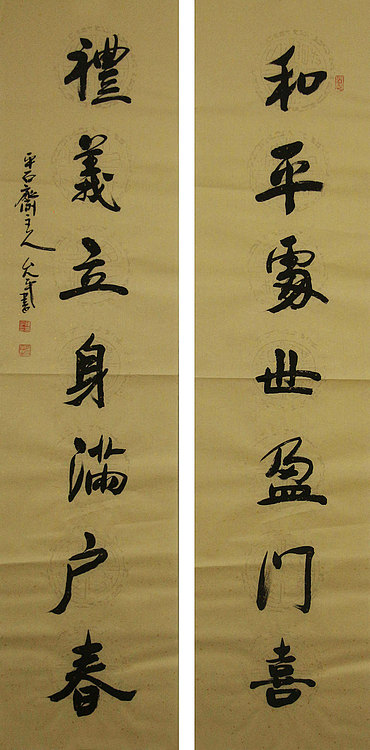 和平處世盈门喜
禮義立身滿户春
平石齋主人